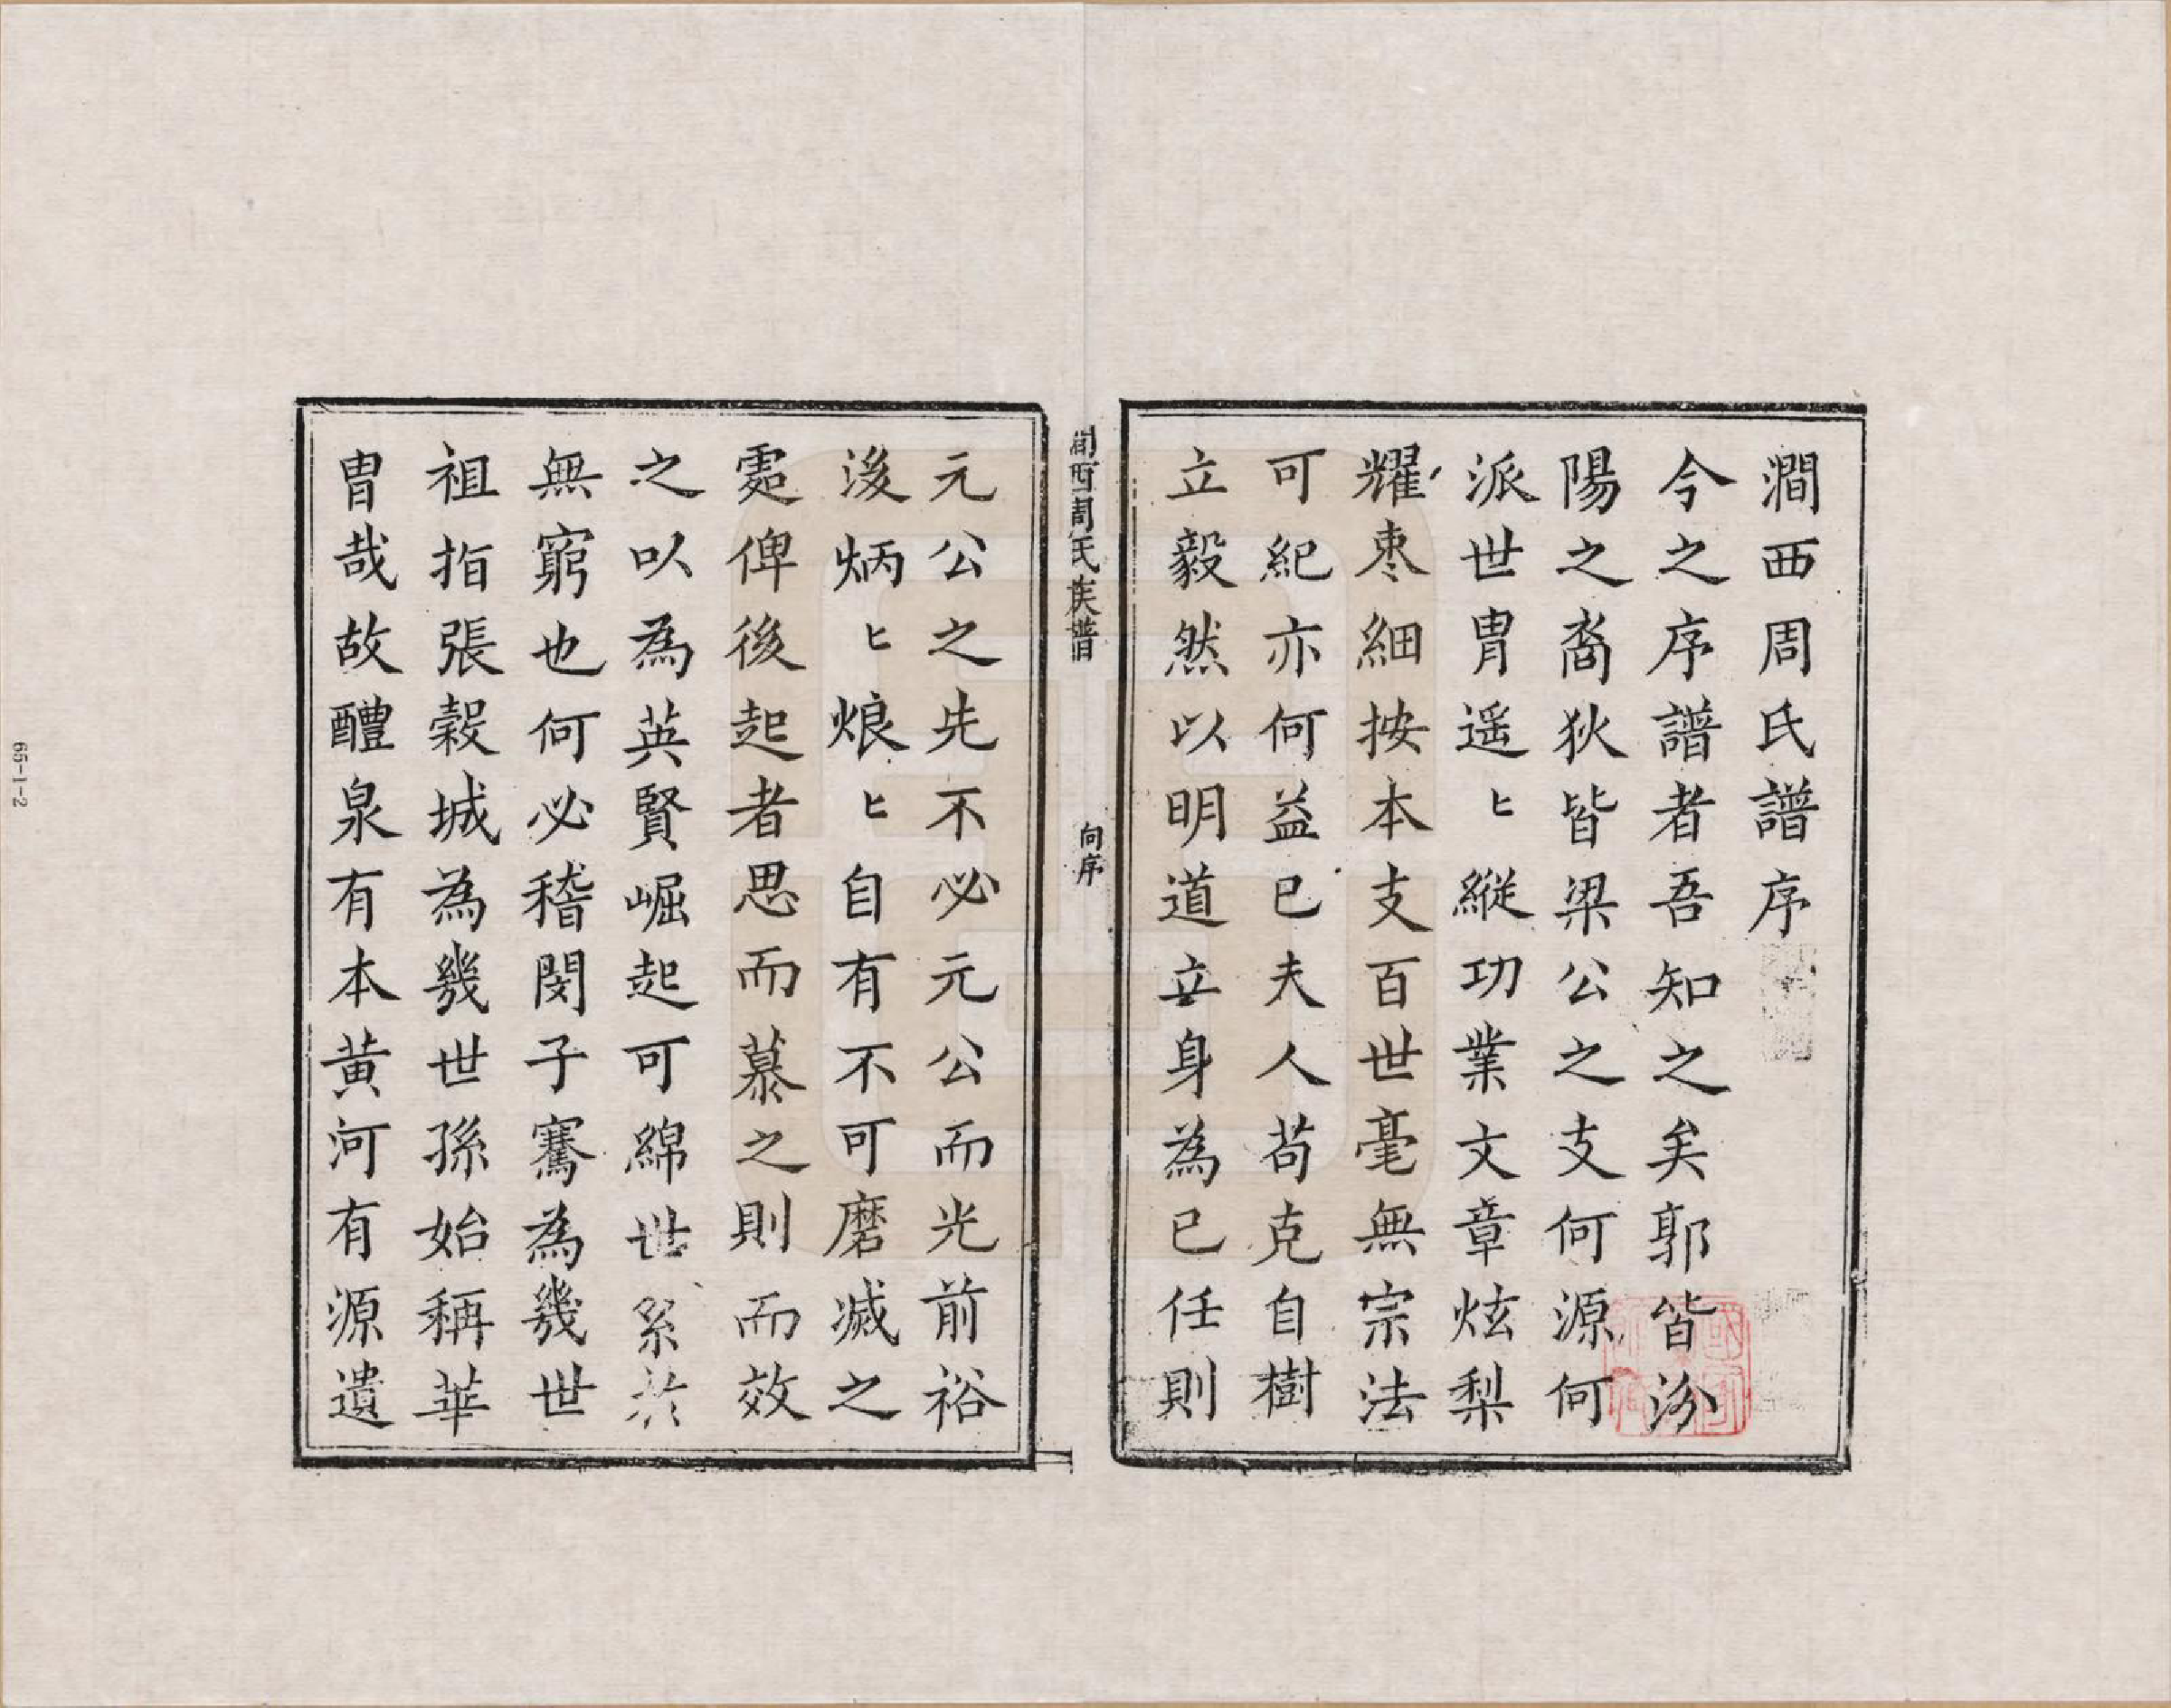 澗西周氏譜序
今之序譜者吾知之矣郭皆汾
陽之裔狄皆梁公之支何源何
派世胄遥〻縱功業文章炫梨
耀枣細按本支百世毫無宗法
可紀亦何益已夫人苟克自樹
立毅然以明道立身為已任則
澗西周氏族譜
向序
元公之先不必元公而光前裕
後炳〻烺〻自有不可磨滅之
處俾後起者思而慕之則而效
之以為英賢崛起可綿世系於
無窮也何必稽閔子騫為幾世
祖指張穀城為幾世孫始稱華
胄哉故醴泉有本黄河有源遺
65-1-2